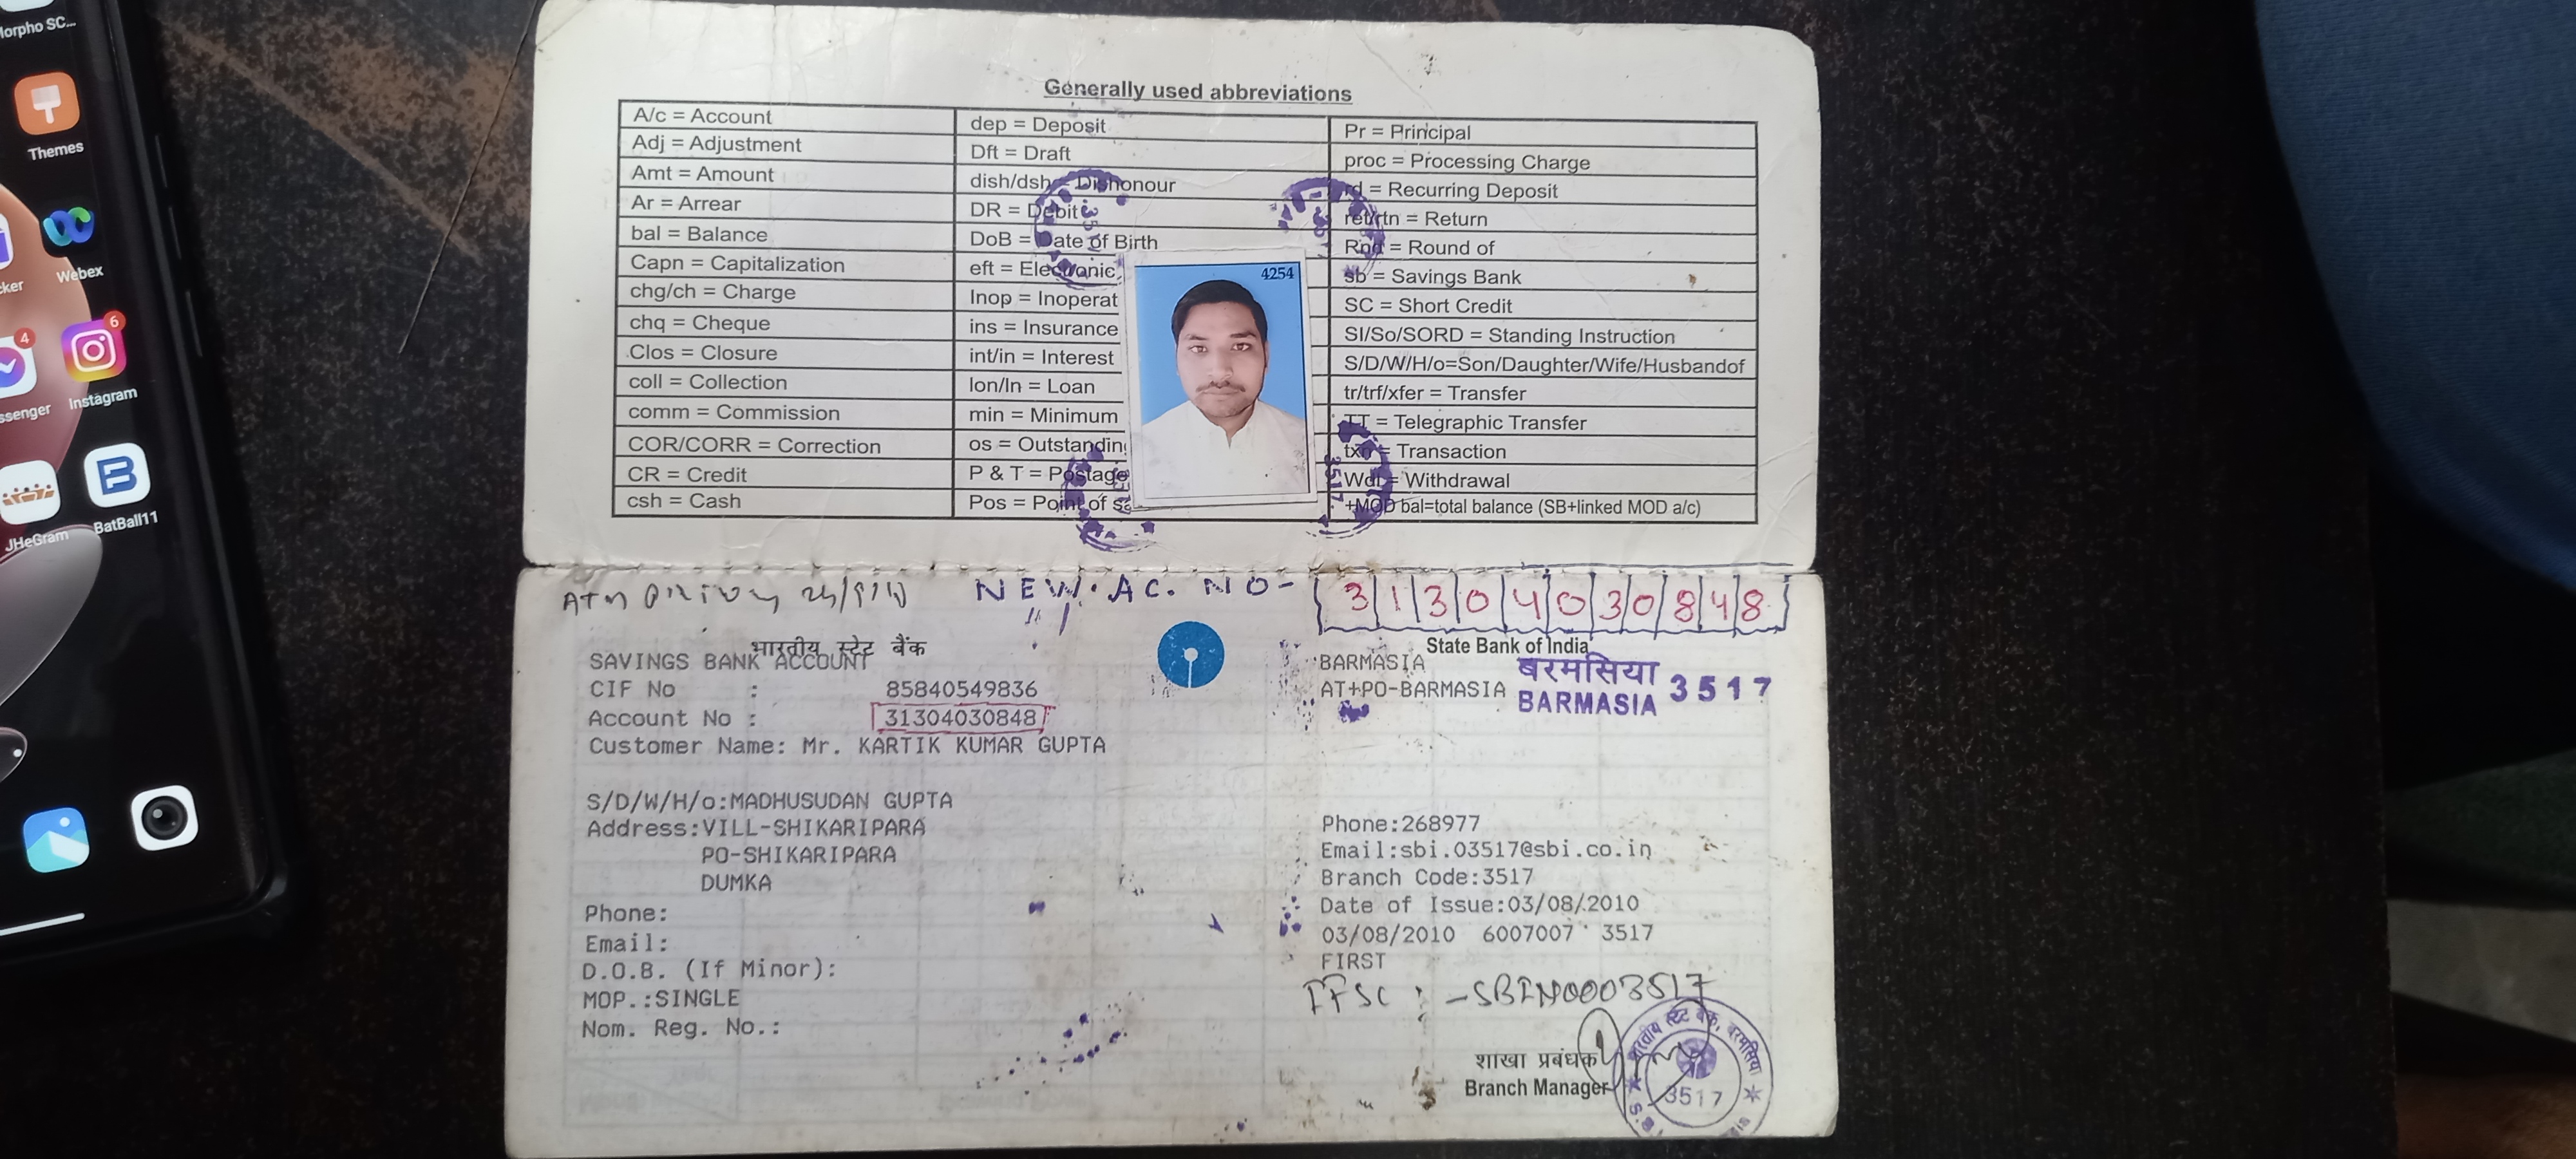 Morpho SC...
Themes
Webex
cker
4
6
ssenger
Instagram
JHeGram
BatBall11
Generally used abbreviations
A/c = Account
Adj = Adjustment
Amt = Amount
Ar = Arrear
bal = Balance
Capn = Capitalization
chg/ch = Charge
chq = Cheque
Clos = Closure
coll = Collection
comm = Commission
COR/CORR = Correction
CR = Credit
csh = Cash
dep = Deposit
Dft = Draft
dish/dsh = Dishonour
DR = Debit
DoB = Date of Birth
eft = Electronic
Inop = Inoperat
ins = Insurance
int/in = Interest
lon/ln = Loan
min = Minimum
os = Outstandin
P & T = Postage
Pos = Point of sa
4254
Pr = Principal
proc = Processing Charge
rd = Recurring Deposit
ret/rtn = Return
Rnd = Round of
sb = Savings Bank
SC = Short Credit
SI/So/SORD = Standing Instruction
S/D/W/H/o=Son/Daughter/Wife/Husbandof
tr/trf/xfer = Transfer
TT = Telegraphic Transfer
txn = Transaction
Wdl = Withdrawal
+MOD bal=total balance (SB+linked MOD a/c)
3517
ATM
NEW. AC. NO- 31304030848
भारतीय स्टेट बैंक
State Bank of India
SAVINGS BANK ACCOUNT
CIF No : 85840549836
Account No : 31304030848
Customer Name: Mr. KARTIK KUMAR GUPTA
S/D/W/H/o:MADHUSUDAN GUPTA
Address:VILL-SHIKARIPARA
PO-SHIKARIPARA
DUMKA
Phone:
Email:
D.O.B. (If Minor):
MOP.:SINGLE
Nom. Reg. No.:
BARMASIA
AT+PO-BARMASIA
बरमसिया
BARMASIA 3517
Phone:268977
Email:sbi.03517@sbi.co.in
Branch Code:3517
Date of Issue:03/08/2010
03/08/2010 6007007 3517
FIRST
IFSC : -SBIN0003517
शाखा प्रबंधक
Branch Manager
भारतीय स्टेट बैंक, बरमसिया
3517